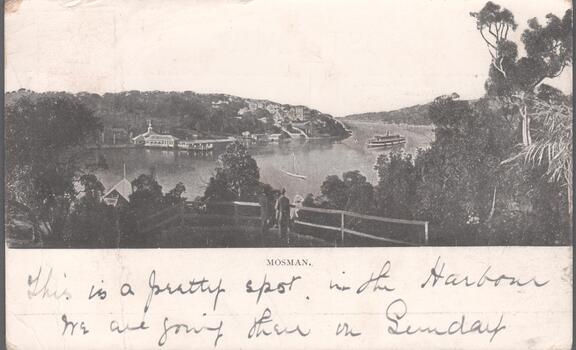 MOSMAN.
This is a pretty spot. in the Harbour
We are going there on Sunday